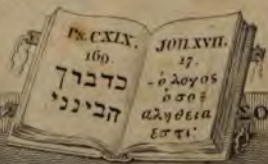 Ps. CXIX.
169.
כדברך
הבינני
JOH. XVII.
17.
- ὁ λογος
ὁ σος
αληθεια
ἐστι·
ΣΟ